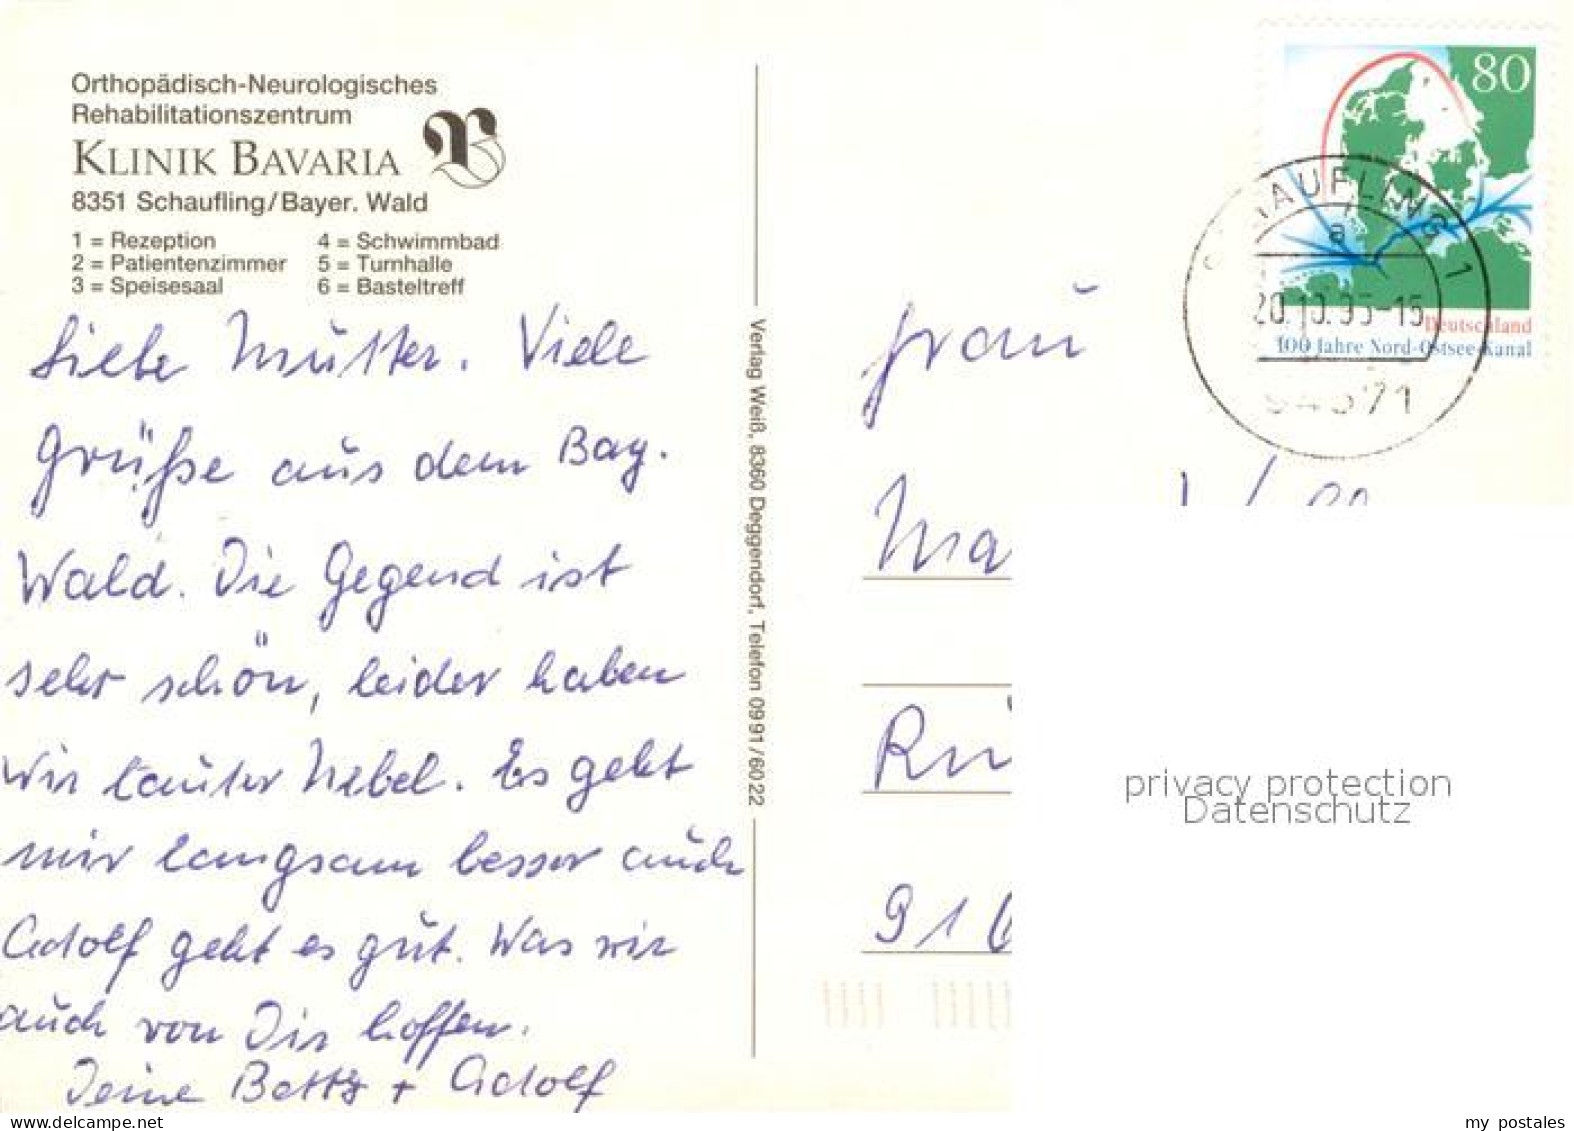 Orthopädisch-Neurologisches
Rehabilitationszentrum
KLINIK BAVARIA
8351 Schaufling/Bayer. Wald
1 = Rezeption
2 = Patientenzimmer
3 = Speisesaal
4 = Schwimmbad
5 = Turnhalle
6 = Basteltreff
Liebe Mutter. Viele
Grüße aus dem Bay.
Wald. Die Gegend ist
sehr schön, leider haben
wir lauter Nebel. Es geht
mir langsam besser auch
Adolf geht es gut. Was wir
auch von Dir hoffen.
Deine Betty + Adolf
Verlag Weiß, 8360 Deggendorf, Telefon 0991/6022
80
Deutschland
100 Jahre Nord-Ostsee-Kanal
SCHAUFLING 1
a
20.10.95-15
94571
Frau
Ma
Rü
916
privacy protection
Datenschutz
www.delcampe.net
my_postales